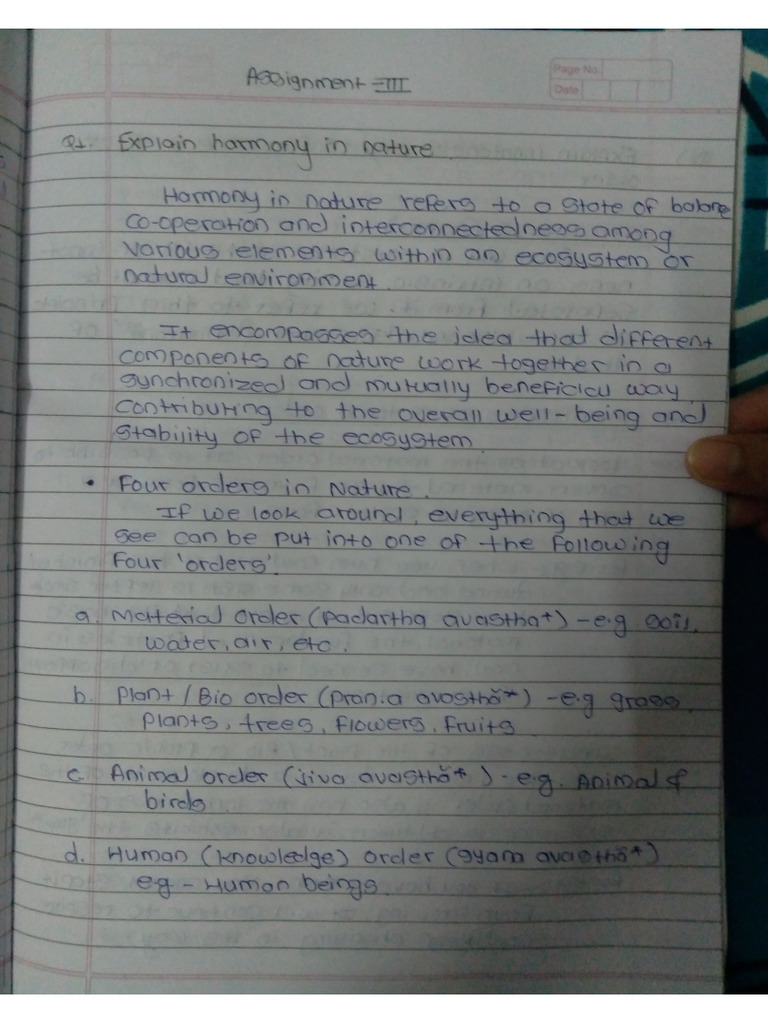 Assignment - III
Page No.
Date
Q1. Explain harmony in nature.
Harmony in nature refers to a state of balane
co-operation and interconnectedness among
various elements within an ecosystem or
natural environment.
It encompasses the idea that different
components of nature work together in a
synchronized and mutually beneficial way,
contributing to the overall well-being and
stability of the ecosystem.
• Four orders in Nature.
If we look around, everything that we
see can be put into one of the following
four 'orders'.
a. Material order (padartha avastha*) - e.g soil,
water, air, etc.
b. Plant / Bio order (prania avosthā*) - e.g grass,
plants, trees, flowers, fruits
c. Animal order (jiva avasthā*) - e.g. Animal &
birds.
d. Human (knowledge) order (gyana avasthā*)
eg - Human beings.